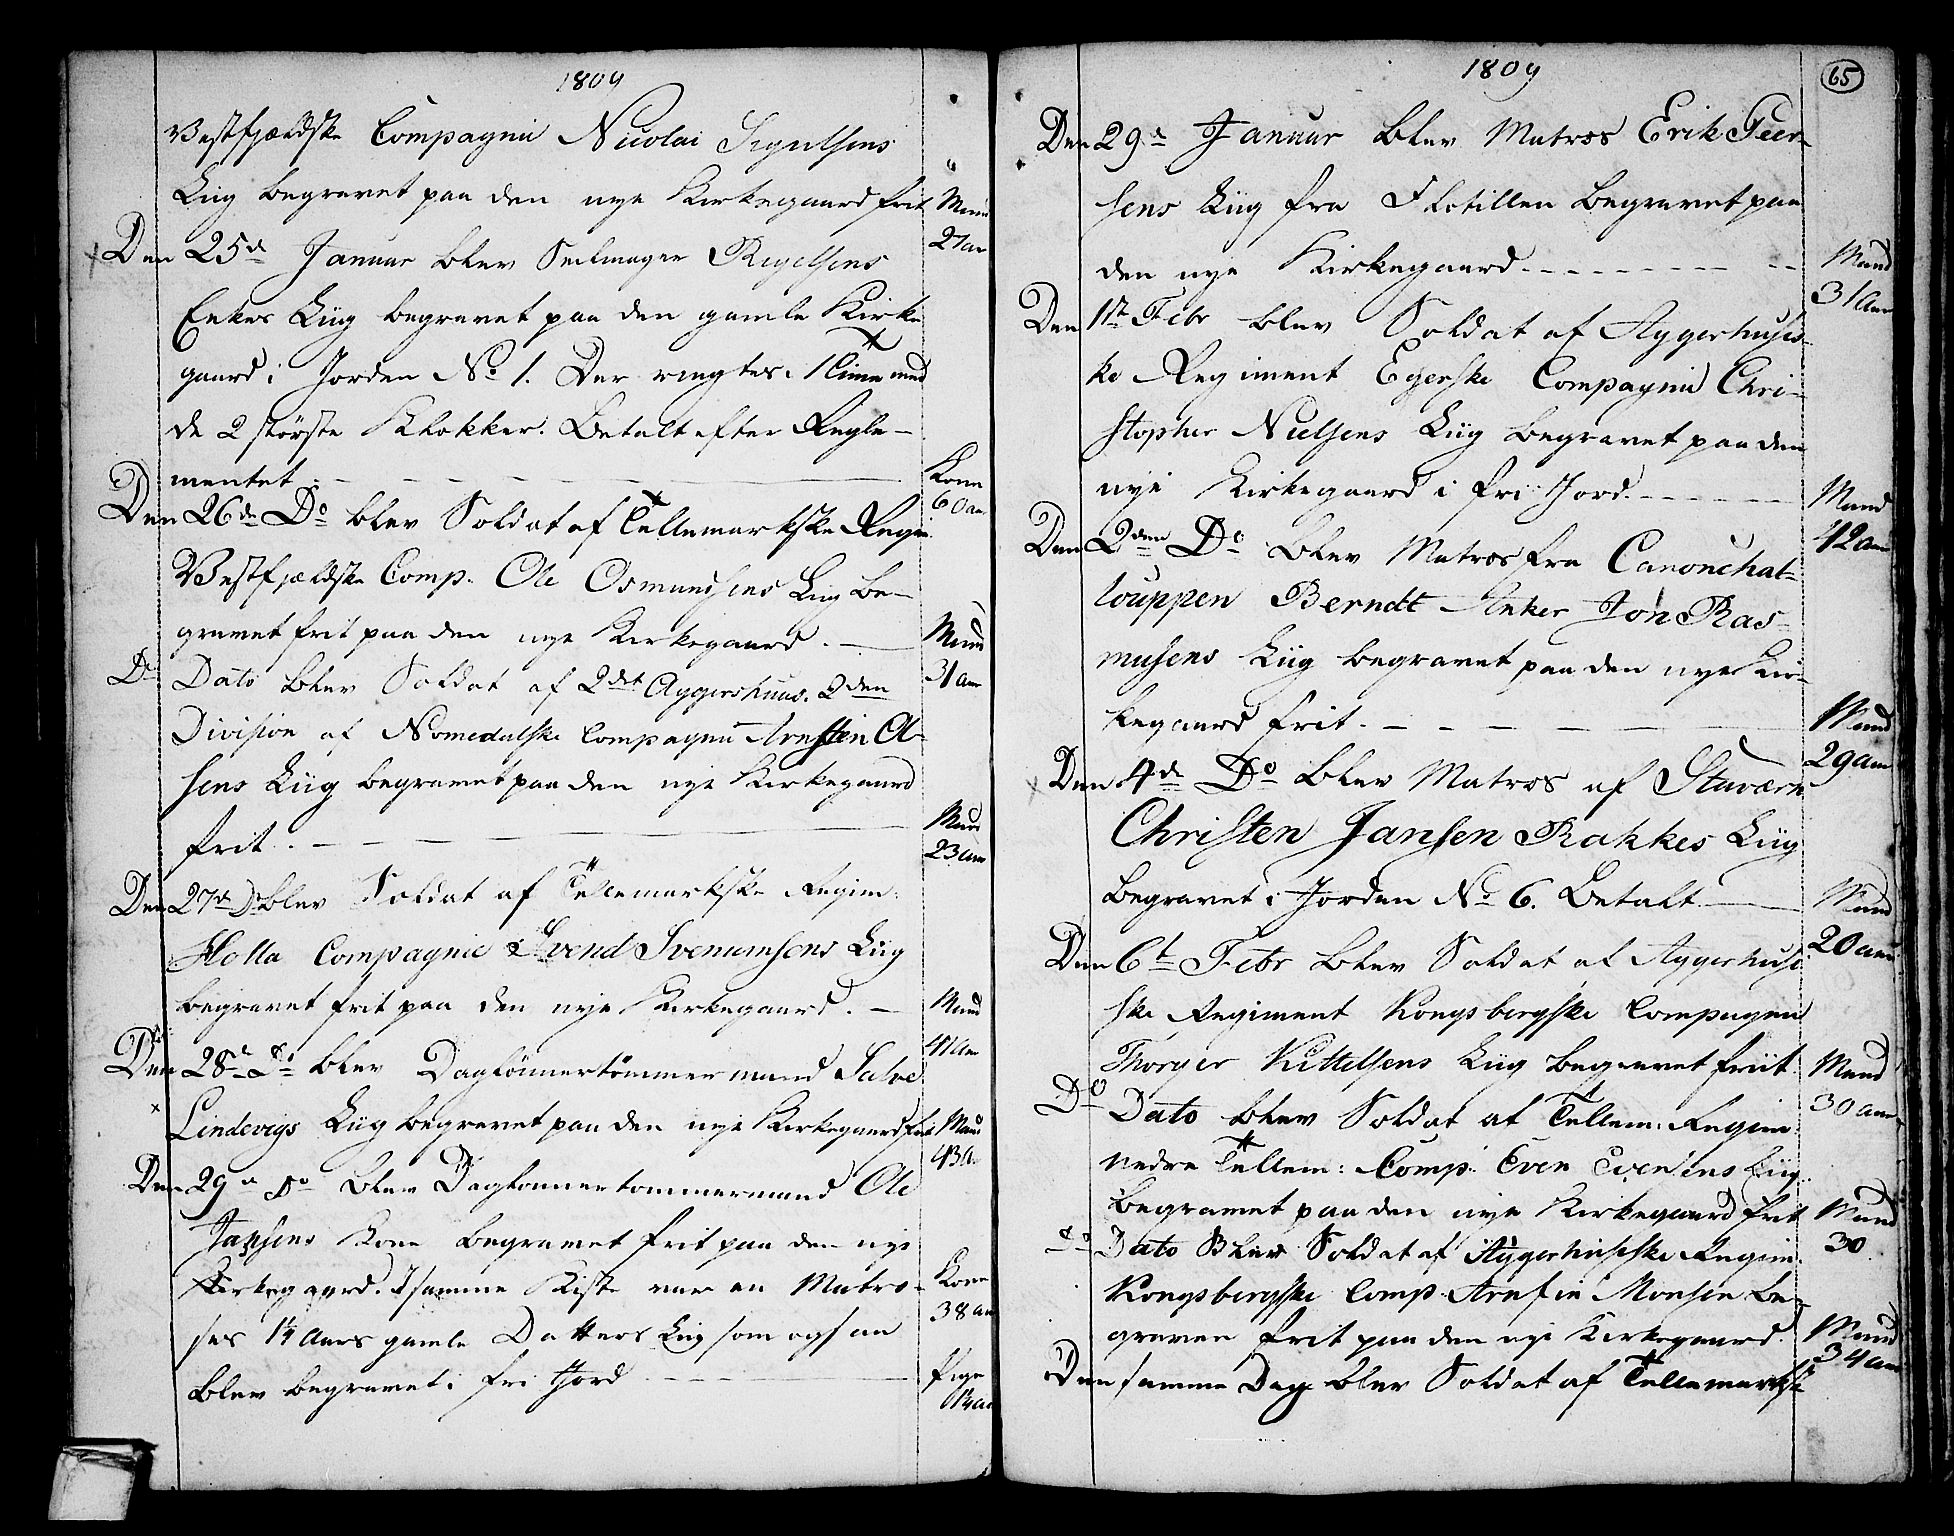 1809
Vestfjældske Compagnie Nicolai
Liig begravet paa den nye Kirkegaard frit
Mand
27 aar
Den 25de Januar blev Seilmager Rigelsens
Enkes Liig begravet paa den gamle Kirke
gaard i Jorden No 1. Der ringtes 1 Time med
de 2 største Klokker. Betalt efter Regle-
mentet
Kone
60 aar
Den 26de Do blev Soldat af Tellemarkske Regim.
Vestfjældske Comp. Ole Osmundsens Liig be-
gravet frit paa den nye Kirkegaard.
Mand
31 aar
Do Dato blev Soldat af 2det Aggershuus. 2den
Division af Nomedalske Compagnie Arnsten Ol-
sens Liig begravet paa den nye Kirkegaard
frit.
Mand
23 aar
Den 27de Do blev Soldat af Tellemarkske Regim:
Holla Compagnie Svend Svenumsens Liig
begravet frit paa den nye Kirkegaard.
Mand
41 aar
Den 28de Do blev Daglönnertömmermand Salve
Lindevigs Liig begravet paa den nye Kirkegaard frit
Mand
43 a
Den 29de Do blev Daglønnertømmermand Ole
Kone begravet frit paa den nye
Kirkegaard. I samme Kiste var en Matro-
ses 1¼ Aars gamle Datters Liig som ogsaa
blev begravet i fri Jord
Kone
38 aar
Pige
1¼ aar
1809
65
Den 29de Januar blev Matros Erik Peer-
sens Liig fra Flotillen begravet paa
den nye Kirkegaard
Mand
31 Aar
Den 1ste Febr blev Soldat af Aggerhuusis-
ke Regiment Egerske Compagnie Chri-
stopher Nielsens Liig begravet paa den
nye Kirkegaard i fri Jord.
Mand
42 aar
Den 2den Do blev Matros fra Canonchal-
louppen Berndt Anker Jon Ras-
musens Liig begravet paa den nye Kir-
kegaard frit.
Mand
29 aar
Den 4de Do blev Matros af Staværn
Christen Jansen Rakkes Liig
begravet i Jorden No 6. Betalt
Mand
20 aar
Den 6te Febr blev Soldat af Aggerhusi
ske Regiment Kongsbergske Compagnie
Thorger Kittelsens Liig begravet friit.
Mand
30 aar
Do Dato blev Soldat af Tellem: Regim:
nedre Tellem: Comp: Even Evensens Liig
begravet paa den nye Kirkegaard frit
Mand
30
do Dato Blev Soldat af Aggerhusiske Regim.
Kongsbergske Comp. Arnfin Monsen be-
graven frit paa den nye Kirkegaard.
Mand
34 aar
Den samme Dag blev Soldat af Tellemarkske